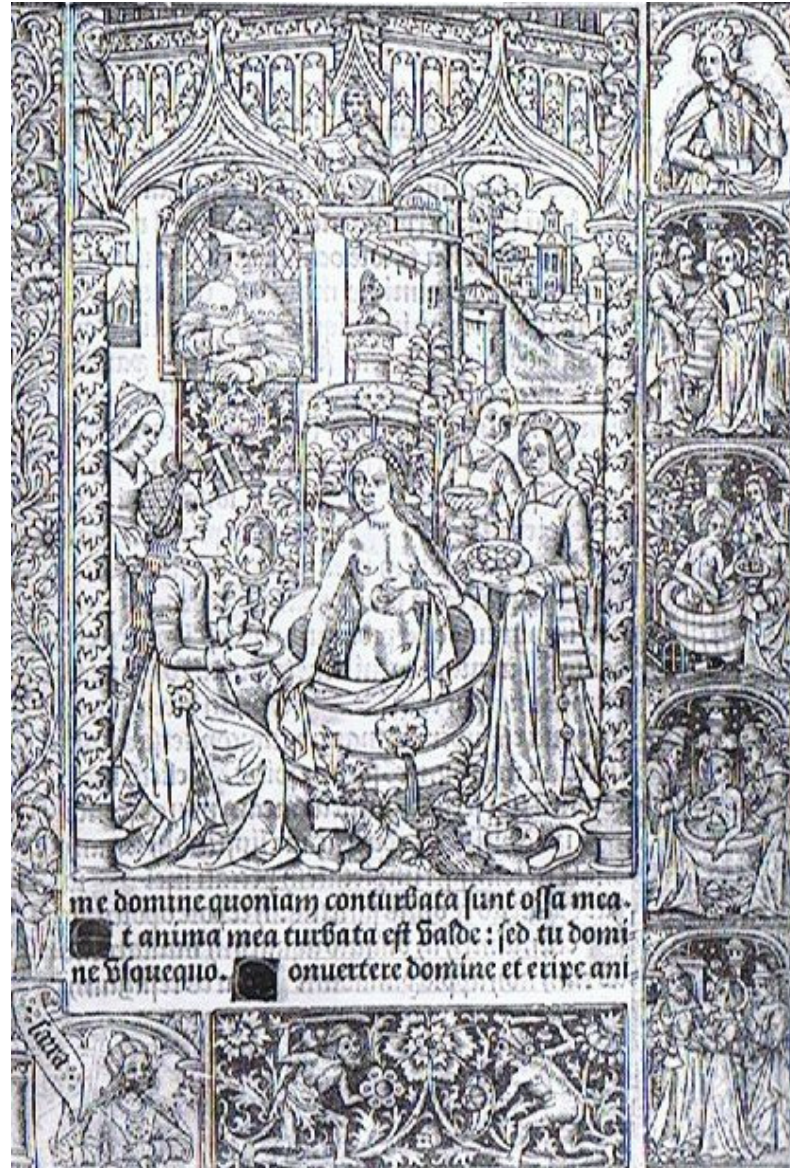 me domine quoniam conturbata sunt ossa mea.
Et anima mea turbata est valde: sed tu domi=
ne vsquequo. Conuertere domine et eripe ani
sara